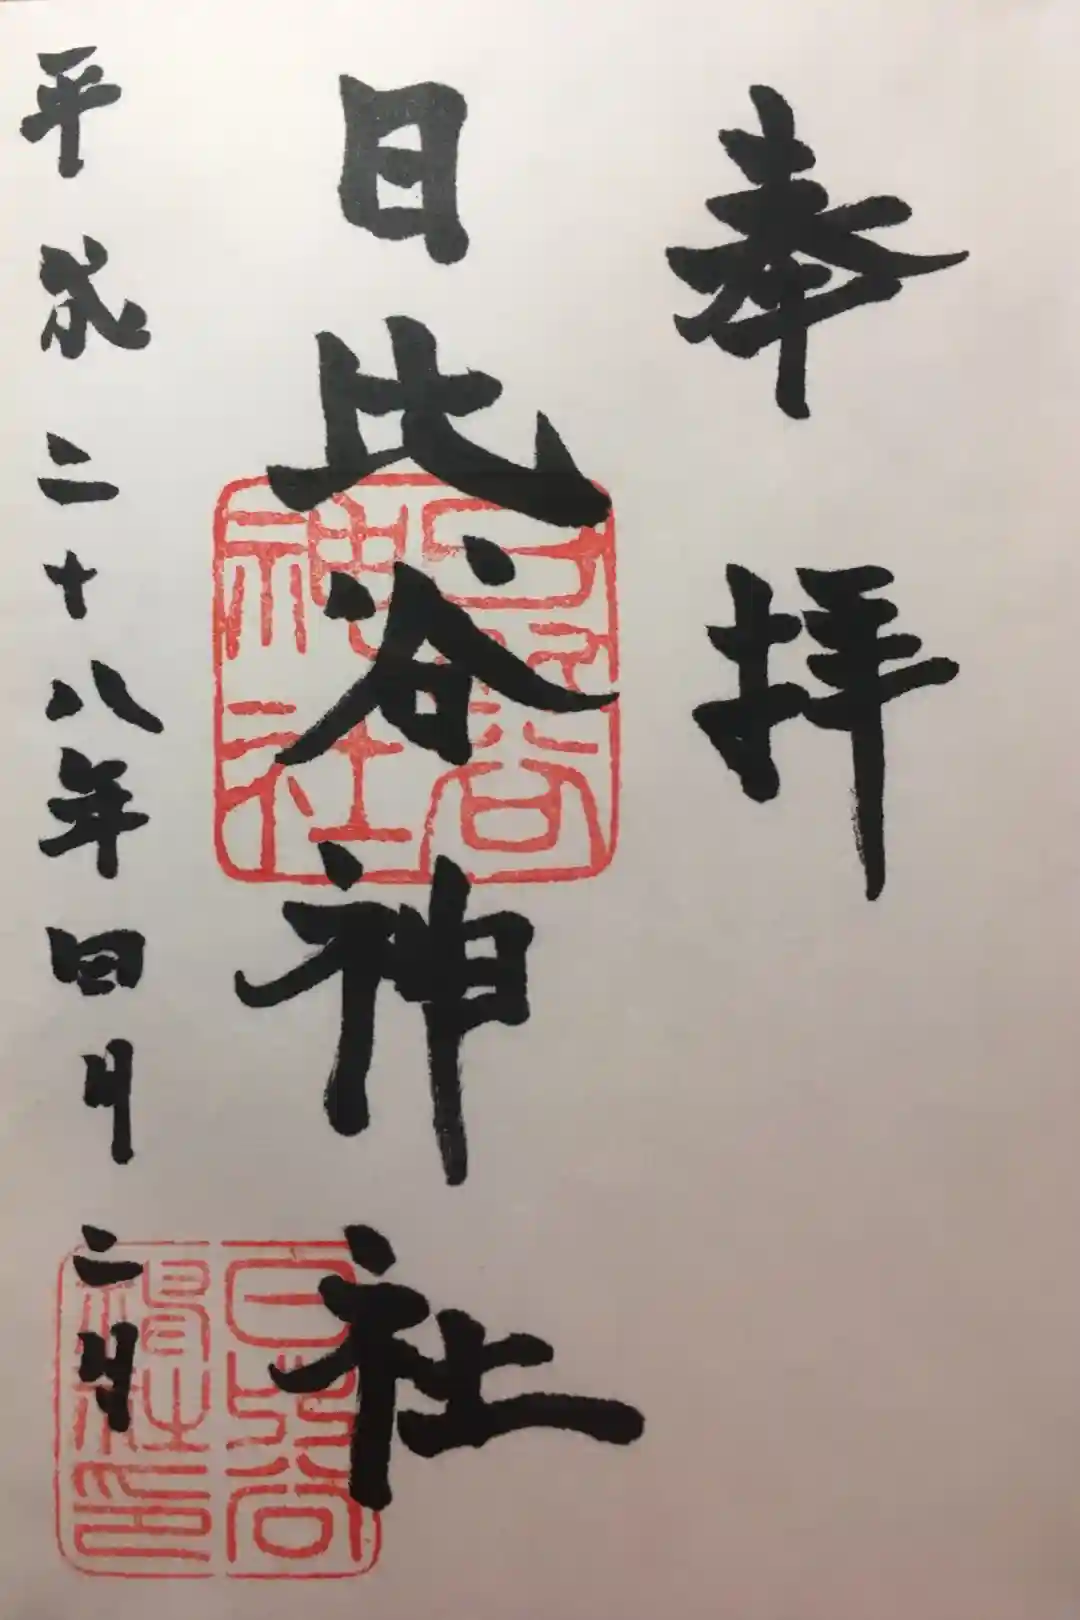 奉拝
日比谷神社
平成二十八年四月二日
日比谷
神社
日比谷
神社印